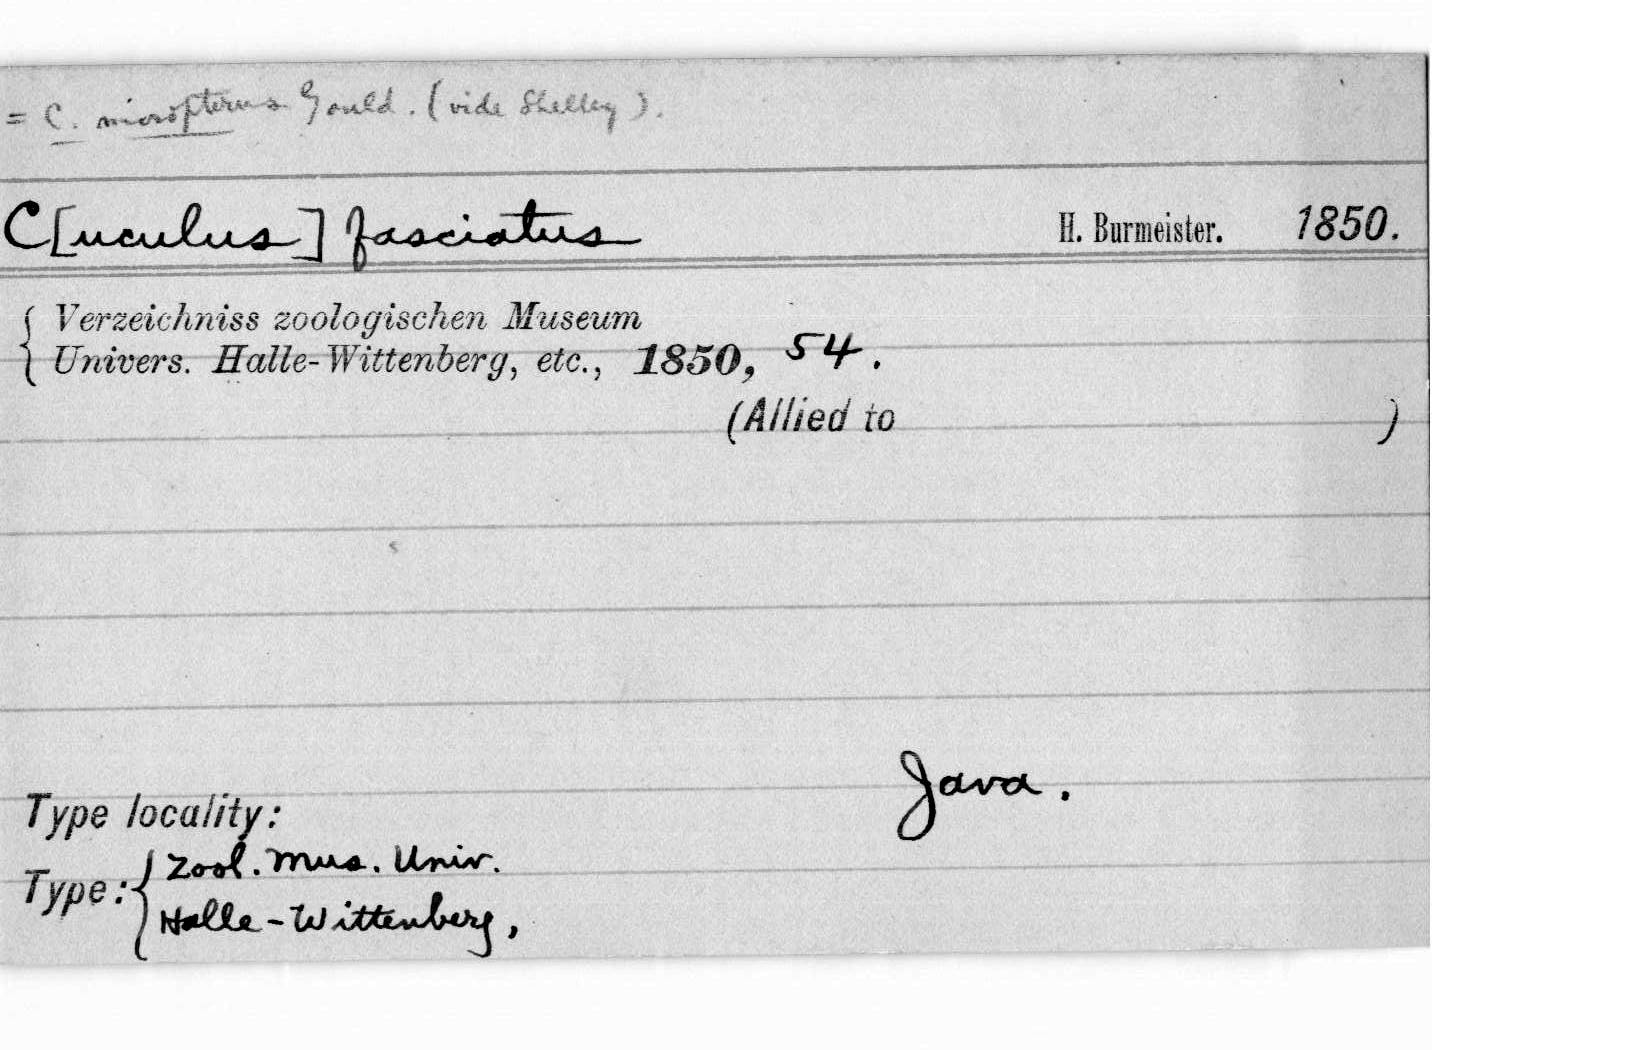 = C. micropterus Gould. (vide Shelley).
C[uculus] fasciatus H. Burmeister. 1850.
{ Verzeichniss zoologischen Museum
Univers. Halle-Wittenberg, etc., 1850, 54.
(Allied to )
Java.
Type locality:
Type: { Zool. Mus. Univ.
Halle-Wittenberg,